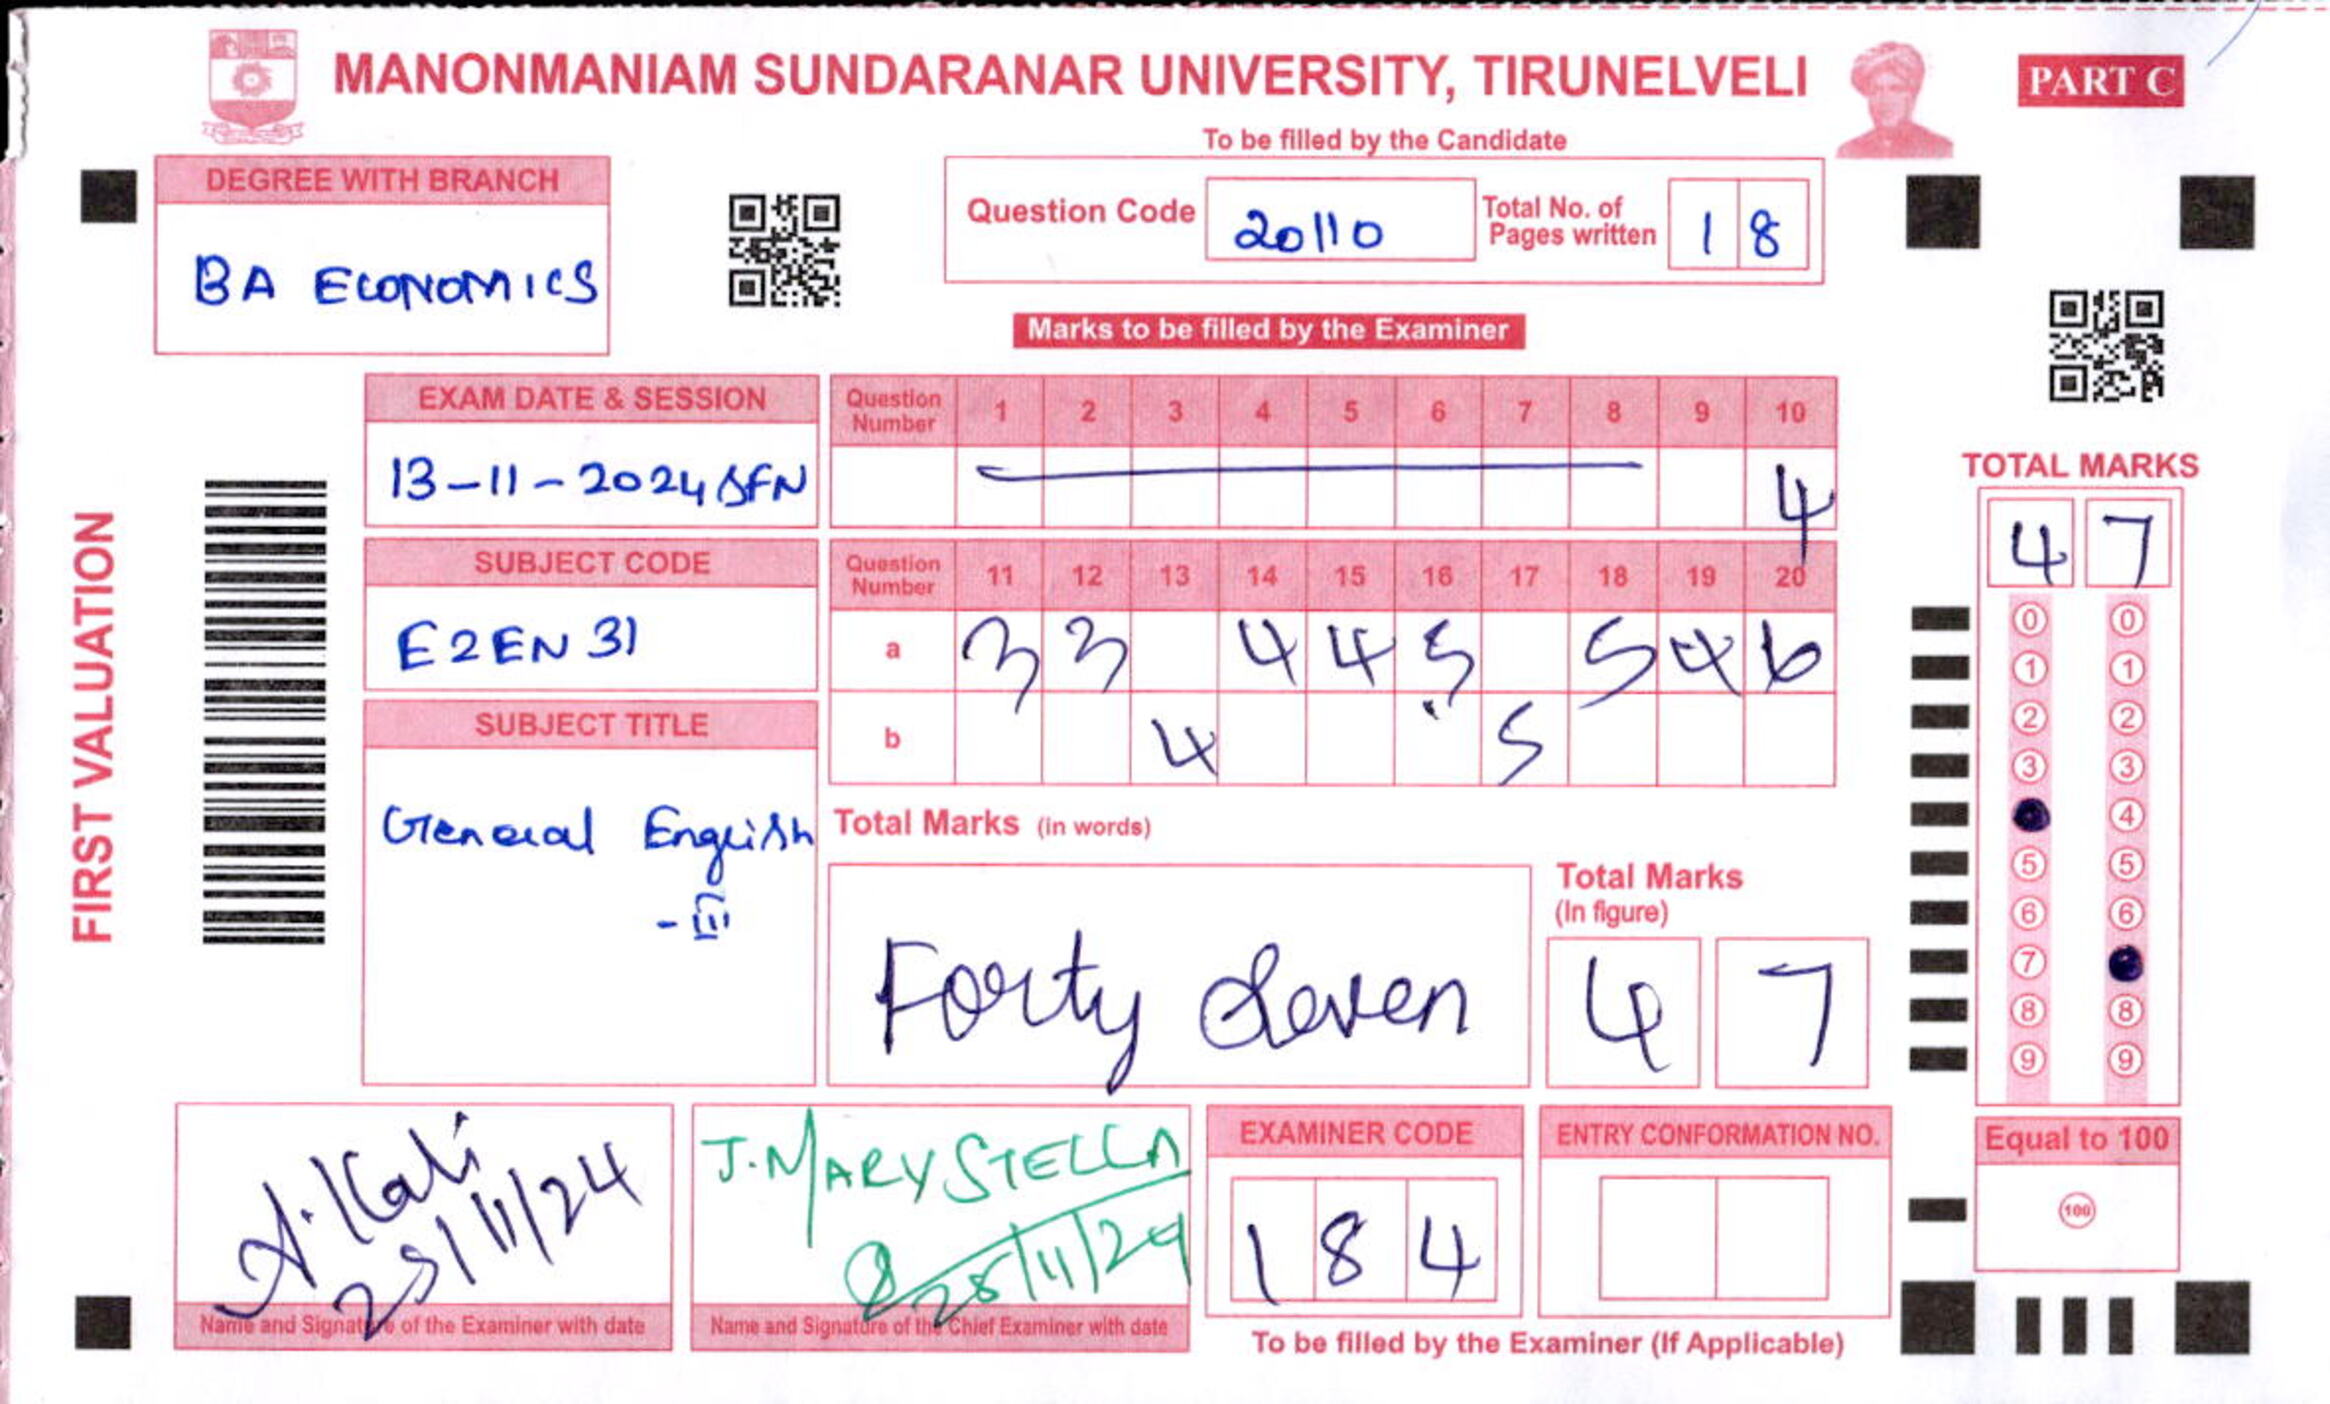 MANONMANIAM SUNDARANAR UNIVERSITY, TIRUNELVELI
PART C
To be filled by the Candidate
DEGREE WITH BRANCH
BA ECONOMICS
Question Code 20110 Total No. of Pages written 1 8
Marks to be filled by the Examiner
FIRST VALUATION
EXAM DATE & SESSION
13-11-2024 &FN
SUBJECT CODE
E2EN31
SUBJECT TITLE
General English
- III
Question Number 1 2 3 4 5 6 7 8 9 10
4
Question Number 11 12 13 14 15 16 17 18 19 20
a 3 3 4 4 5 5 4 6
b 4 5
Total Marks (in words)
Forty Seven
Total Marks (In figure)
4 7
TOTAL MARKS
4 7
0 0
1 1
2 2
3 3
4
5 5
6 6
7
8 8
9 9
Equal to 100
100
A. Kali
25/11/24
Name and Signature of the Examiner with date
J. MARY STELLA
25/11/24
Name and Signature of the Chief Examiner with date
EXAMINER CODE
1 8 4
ENTRY CONFORMATION NO.
To be filled by the Examiner (If Applicable)